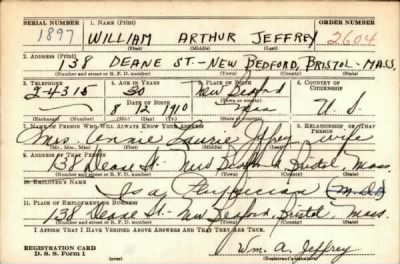 SERIAL NUMBER 1. NAME (Print) ORDER NUMBER
1897 WILLIAM ARTHUR JEFFREY 2604
(First) (Middle) (Last)
2. ADDRESS (Print)
138 DEANE ST.-NEW BEDFORD, BRISTOL-MASS.
(Number and street or R. F. D. number) (Town) (County) (State)
3. TELEPHONE 4. AGE IN YEARS 5. PLACE OF BIRTH 6. COUNTRY OF CITIZENSHIP
2-4315 30 New Bedford
DATE OF BIRTH (Town or county)
8 1910 Mass U. S.
(Exchange) (No.) (Mo.) (Day) (Yr.) (State or country)
7. NAME OF PERSON WHO WILL ALWAYS KNOW YOUR ADDRESS 8. RELATIONSHIP OF THAT PERSON
Mrs. Jeffrey wife
(Mr., Mrs., Miss) (First) (Middle) (Last)
9. ADDRESS OF THAT PERSON
138 Deane St. New Bedford Bristol, Mass.
(Number and street or R. F. D. number) (Town) (County) (State)
10. EMPLOYER'S NAME
Is a Physician (M.D.)
11. PLACE OF EMPLOYMENT OR BUSINESS
138 Deane St. New Bedford, Bristol, Mass.
(Number and street or R. F. D. number) (Town) (County) (State)
I AFFIRM THAT I HAVE VERIFIED ABOVE ANSWERS AND THAT THEY ARE TRUE.
REGISTRATION CARD
D. S. S. Form 1 Wm. A. Jeffrey